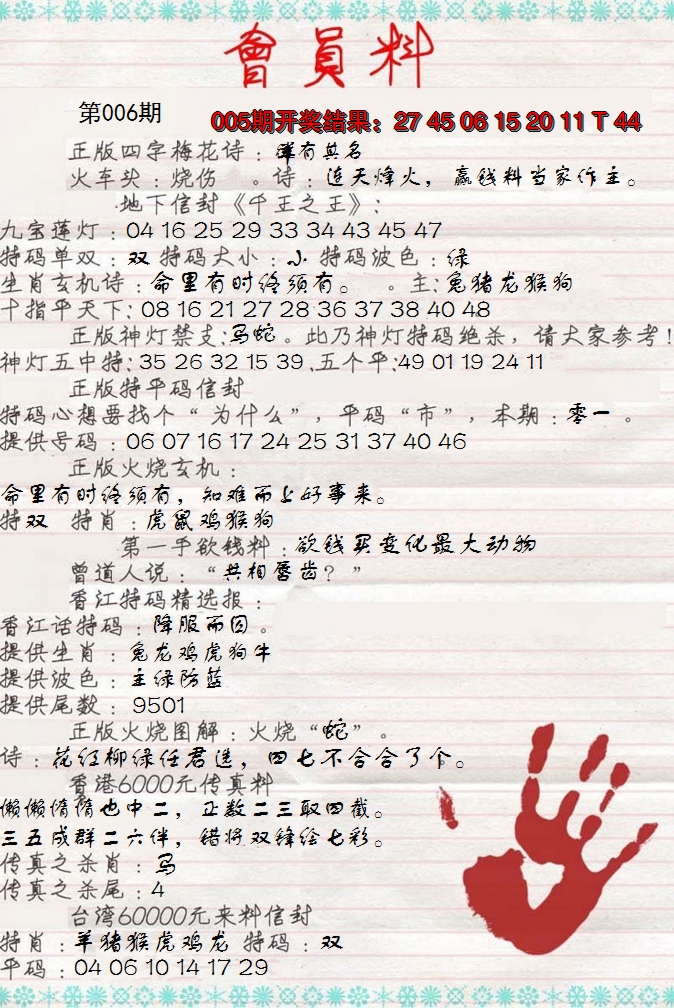 會員料
第006期
005期开奖结果：27 45 06 15 20 11 T 44
正版四字梅花诗：浑有其名
火车头：烧伤 。诗：连天烽火，赢钱料当家作主。
地下信封《千王之王》：
九宝莲灯：04 16 25 29 33 34 43 45 47
特码单双：双 特码大小：小 特码波色：绿
生肖玄机诗：命里有时终须有。 。主：兔猪龙猴狗
十指平天下：08 16 21 27 28 36 37 38 40 48
正版神灯禁支：马蛇。此乃神灯特码绝杀，请大家参考！
神灯五中特：35 26 32 15 39 .五个平：49 01 19 24 11
正版特平码信封
特码心想要找个“为什么”，平码“市”，本期：零一 。
提供号码：06 07 16 17 24 25 31 37 40 46
正版火烧玄机：
命里有时终须有，知难而上好事来。
特双 特肖：虎鼠鸡猴狗
第一手欲钱料：欲钱买变化最大动物
曾道人说：“共相唇齿？”
香江特码精选报：
香江话特码：降服而囚。
提供生肖：兔龙鸡虎狗牛
提供波色：主绿防蓝
提供尾数：9501
正版火烧图解：火烧“蛇”。
诗：花红柳绿任君选，四七不合合了个。
香港6000元传真料
懒懒惰惰也中二，正数二三取四截。
三五成群二六伴，错将双锋绘七彩。
传真之杀肖：马
传真之杀尾：4
台湾60000元来料信封
特肖：羊猪猴虎鸡龙 特码：双
平码：04 06 10 14 17 29